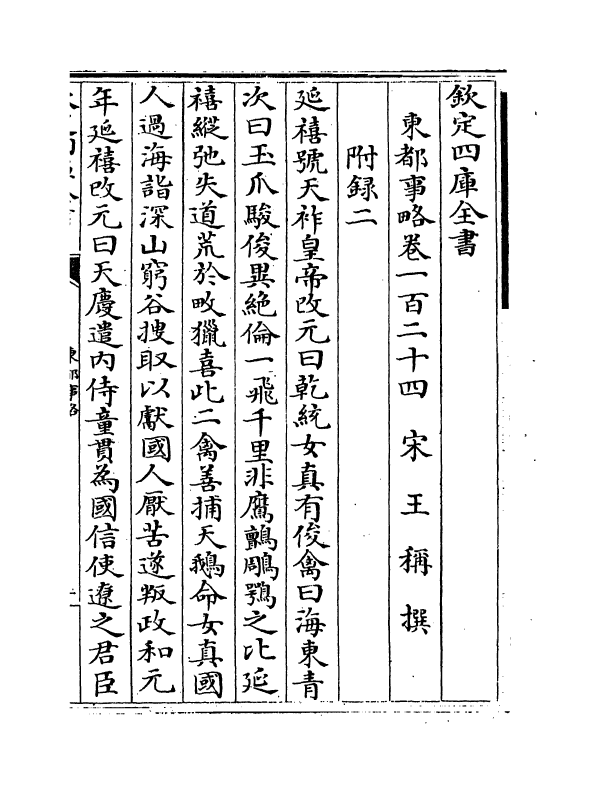 欽定四庫全書
東都事略卷一百二十四 宋 王 稱 撰
附録二
延禧號天祚皇帝改元曰乾統女真有俊禽曰海東青
次曰玉爪駿俊異絶倫一飛千里非鷹鸇鵰鶚之比延
禧縱弛失道荒於畋獵喜此二禽善捕天鵝命女真國
人過海詣深山窮谷搜取以獻國人厭苦遂叛政和元
年延禧改元曰天慶遣内侍童貫為國信使遼之君臣
東都事略